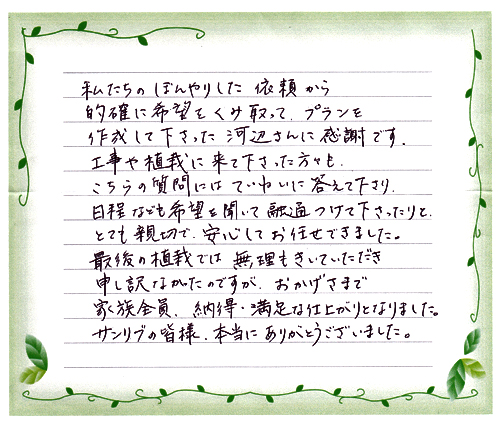 私たちのぼんやりした 依頼から
的確に希望をくみ取って、プランを
作成して下さった 河辺さんに感謝です。
工事や植栽に来て下さった方々も、
こちらの質問には ていねいに答えて下さり、
日程なども希望を聞いて 融通つけて下さったりと、
とても親切で、安心してお任せできました。
最後の植栽では 無理もきいていただき
申し訳なかったのですが、おかげさまで
家族全員、納得・満足な仕上がりとなりました。
サンリブの皆様、本当にありがとうございました。